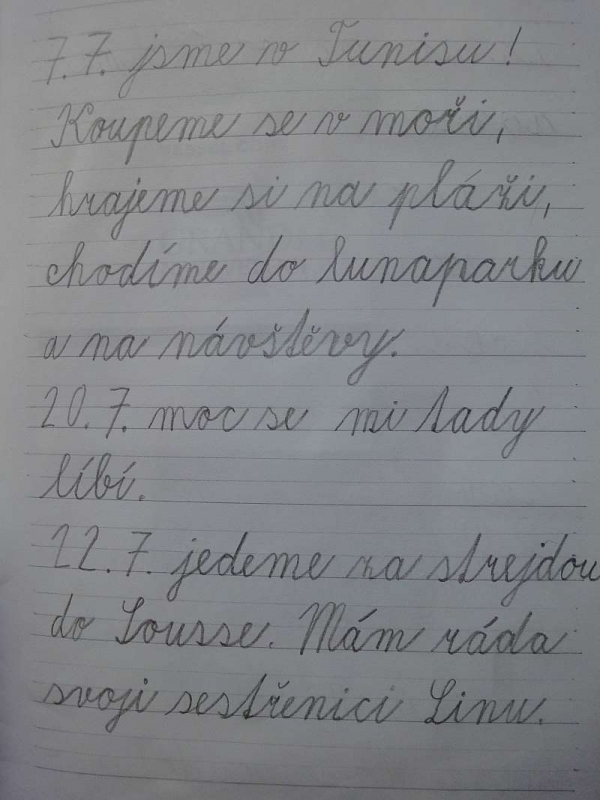 7.7. jsme v Tunisu!
Koupeme se v moři,
hrajeme si na pláži,
chodíme do lunaparku
a na návštěvy.
20.7. moc se mi tady
líbí.
22.7. jedeme za strejdou
do Sousse. Mám ráda
svoji sestřenici Linu.